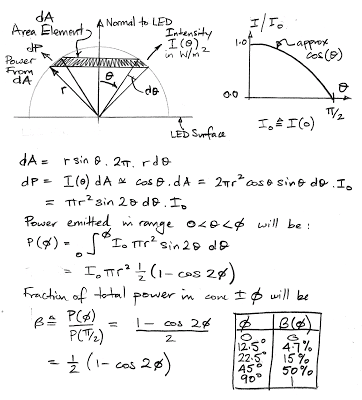 dA
Area Element
Normal to LED
Intensity
I(θ)
in W/m²
dP
Power
From
dA
r
θ
dθ
LED Surface
I/I₀
1.0
approx
cos(θ)
0.0
θ
π/2
I₀ ≜ I(0)
dA = r sin θ. 2π. r dθ
dP = I(θ) dA ≃ cos θ. dA = 2πr² cos θ sin θ dθ. I₀
= πr² sin 2θ dθ. I₀
Power emitted in range 0<θ<ϕ will be:
P(ϕ) = ₀∫^ϕ I₀ πr² sin 2θ dθ
= I₀ πr² ½ (1 - cos 2ϕ)
Fraction of total power in cone ± ϕ will be
β ≜ P(ϕ)/P(π/2) = (1 - cos 2ϕ)/2
= ½ (1 - cos 2ϕ)
ϕ β(ϕ)
0 0
12.5° 4.7%
22.5° 15%
45° 50%
90° 1